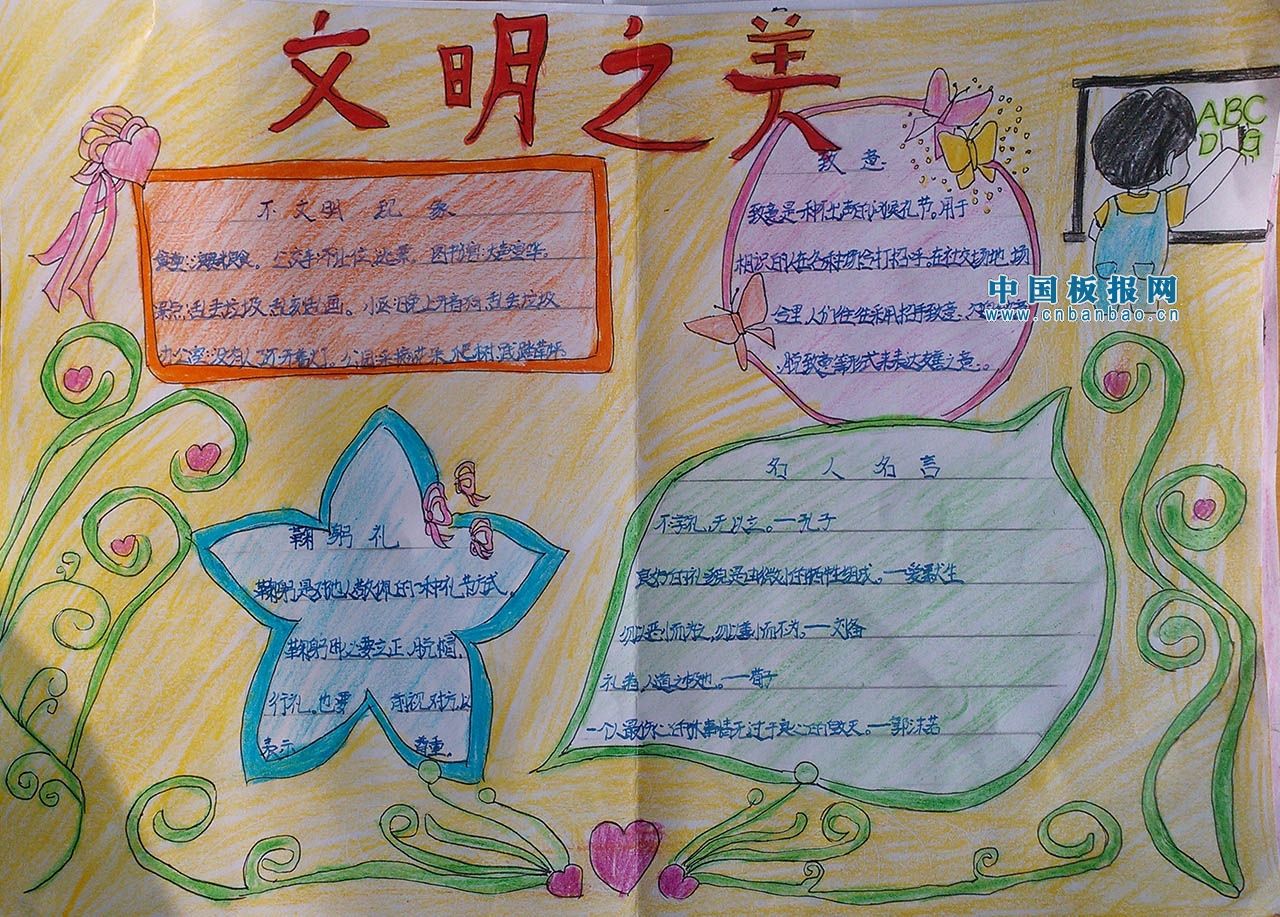 文明之美
不文明现象
食堂:浪费粮食。公交车:不让位,逃票。图书馆:大声喧哗。
景点:乱丢垃圾,乱刻乱画。小区:晚上开音响,乱丢垃圾
办公室:没有人了还开着灯。公园:采摘花朵,爬树,践踏草坪
致意
致意是一种不出声的问候礼节。用于
相识的人在各种场合打招呼。在社交场地 场
合里,人们往往采用招手致意、
脱致意等形式来表达友善之意。
ABC
DG
中国板报网
www.cnbanbao.cn
鞠躬礼
鞠躬是对他人敬佩的一种礼节方式。
鞠躬时必要立正、脱帽,
行礼。也要 前视对方,以
表示 尊重。
名人名言
不学礼,无以立。—孔子
良好的礼貌是由微小的牺牲组成。—爱默生
勿以恶小而为之,勿以善小而不为。—刘备
礼者,人道之极也。—荀子
一个人最伤心的事情无过于良心的毁灭。—郭沫若